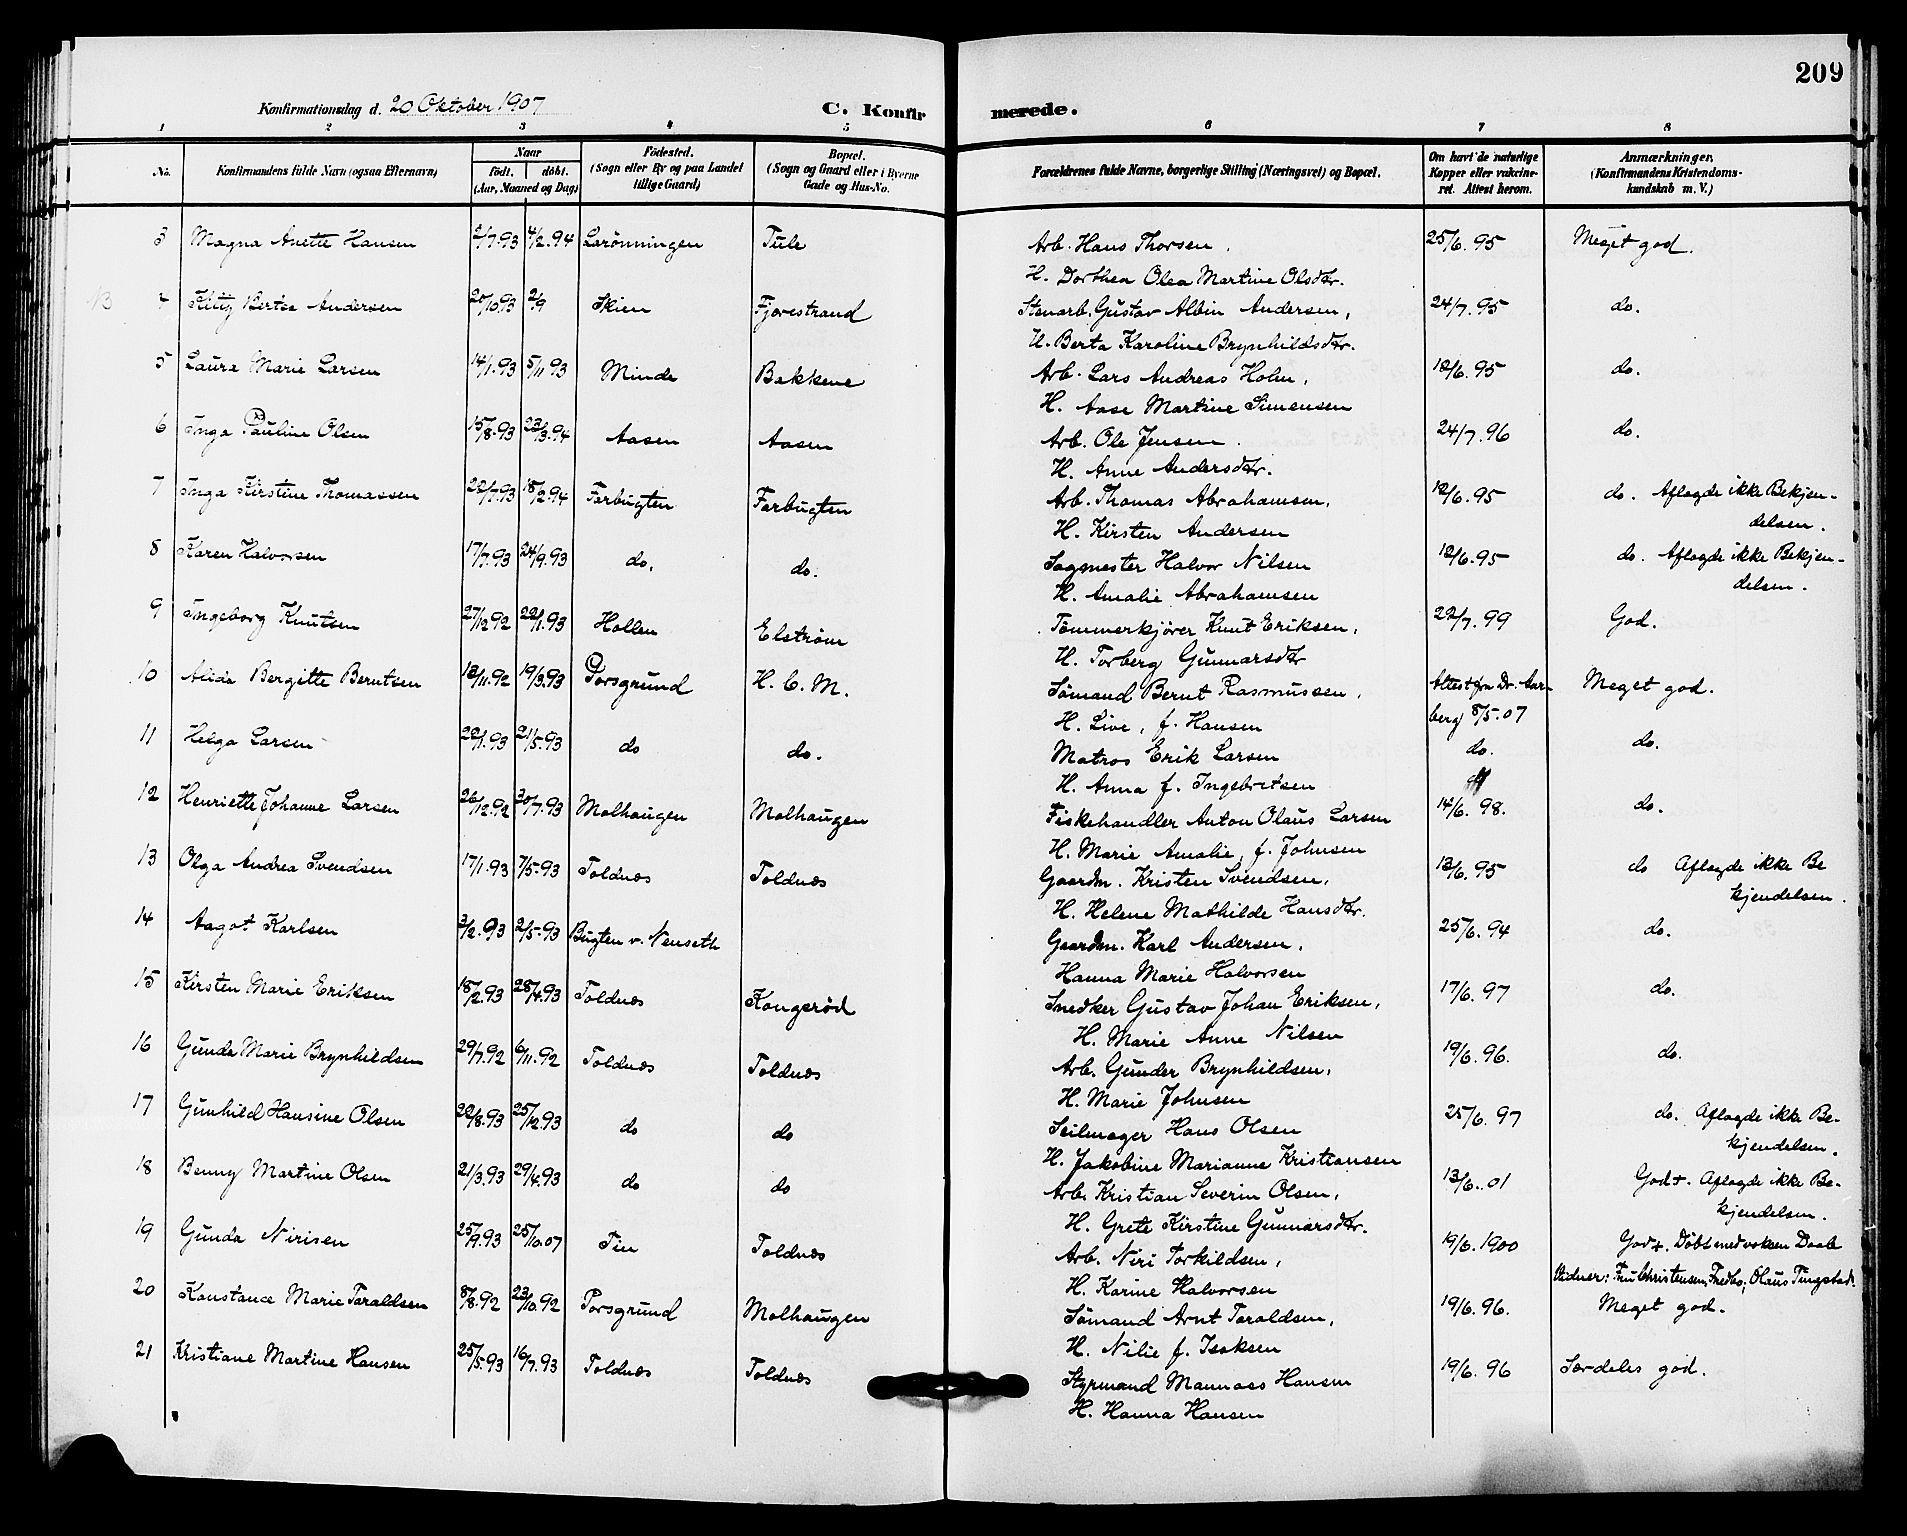 209
Konfirmationsdag d. 20 Oktober 1907 C. Konfirmerede.
1 2 3 4 5 6 7 8
No. Konfirmandens fulde Navn (ogsaa Efternavn) Naar født. døbt. (Aar, Maaned og Dag) Fødested. (Sogn eller By og paa Landet tillige Gaard) Bopæl. (Sogn og Gaard eller i Byerne Gade og Hus-No. Forældrenes fulde Navne, borgerlige Stilling (Næringsvei) og Bopæl. Om havt de naturlige Kopper eller vakcineret. Attest herom. Anmærkninger. (Konfirmandens Kristendomskundskab m. V.)
3 Magna Anette Hansen 2/7.93 4/2.94 Larønningen Tule Arb. Hans Thorsen, 25/6.95 Meget god.
H. Dorthea Olea Martine Olsdtr.
4 Kitty Bertea Andersen 20/10.93 2/9 Skien Fjærestrand Stenarb. Gustav Albin Andersen, 24/7.95 do.
H. Berta Karoline Brynhildsdtr.
5 Laura Marie Larsen 14/1.93 5/11 93 Minde Bakkene Arb. Lars Andreas Holm, 12/6.95 do.
H. Aase Martine Simensen
6 Inga Pauline Olsen 15/8.93 23/3.94 Aasen Aasen Arb. Ole Jensen. 24/7.96 do.
H. Anne Andersdtr.
7 Inga Kirstine Thomassen 22/7.93 18/2.94 Farbugten Farbugten Arb. Thomas Abrahamsen, 12/6.95 do. Aflagde ikke Bekjen-
H. Kirsten Andersen delsen.
8 Karen Halvorsen 17/7.93 24/9.93 do. do. Sagmester Halvor Nilsen 12/6.95 do. Aflagde ikke Bekjen-
H. Amalie Abrahamsen delsen.
9 Ingeborg Knutsen 27/12.92 22/1.93 Hollen Elstrøm Tømmerkjører Knut Eriksen, 22/7.99 God.
H. Torberg Gunnarsdtr
10 Alida Bergitte Berntsen 12/11.92 19/3.93 Porsgrund H. C. M. Sømand Bernt Rasmussen, Attest fra Dr. Aar- Meget god.
H. Live, f. Hansen berg 8/5.07
11 Helga Larsen 22/1.93 21/5.93 do do. Matros Erik Larsen do. do.
H. Anna f. Ingebretsen
12 Henriette Johanne Larsen 26/12.92 30/7.93 Molhaugen Molhaugen Fiskehandler Anton Olaus Larsen 14/6.98. do.
H. Marie Amalie, f. Johnsen
13 Olga Andrea Svendsen 17/1.93 7/5.93 Toldnæs Toldnæs Gaardm. Kristen Svendsen, 13/6.95 do Aflagde ikke Be
H. Helene Mathilde Hansdtr. kjendelsen.
14 Aagot Karlsen 3/2.93 2/5.93 Bugten v. Nenseth Gaardm. Karl Andersen, 25/6.94 do.
Hanna Marie Halvorsen
15 Kirsten Marie Eriksen 18/2.93 28/4.93 Toldnæs Kongerød Snedker Gustav Johan Eriksen, 17/6.97 do.
H. Marie Anne Nilsen
16 Gunda Marie Brynhildsen 29/7.92 6/11.92 Toldnæs Toldnæs Arb. Gunder Brynhildsen, 19/6.96. do.
H. Marie Johnsen
17 Gunhild Hansine Olsen 22/8.93 25/12.93 do do Seilmager Hans Olsen 25/6.97 do. Aflagde ikke Be-
H. Jakobine Marianne Kristiansen kjendelsen.
18 Benny Martine Olsen 21/3.93 29/4.93 do do Arb. Kristian Severin Olsen, 13/6.01 God+. Aflagde ikke Be-
H. Grete Kirstine Gunnarsdtr. kjendelsen.
19 Gunda Nirisen 25/9.93 25/10.07 Tin Toldnæs Arb. Niri Torkildsen, 19/6.1900 God+. Døbt med voksen Daab
H. Karine Halvorsen Vidner: Fru Christensen, Fredbo; Olaus Tingstad.
20 Konstance Marie Taraldsen 8/8.92 23/10.92 Porsgrund Molhaugen Sømand Arnt Taraldsen, 19/6.96. Meget god.
H. Nilie f. Isaksen
21 Kristiane Martine Hansen 25/5.93 16/7.93 Toldnæs Toldnæs Styrmand Mannass Hansen 19/6.96 Særdeles god.
H. Hanna Hansen